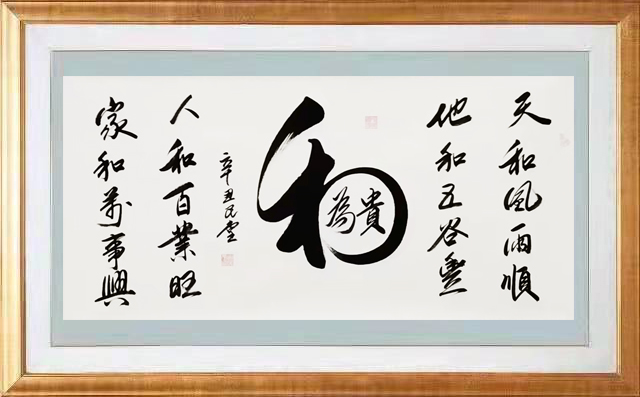 天和風雨順
地和五谷豐
和
為貴
辛丑
人和百業旺
家和萬事興